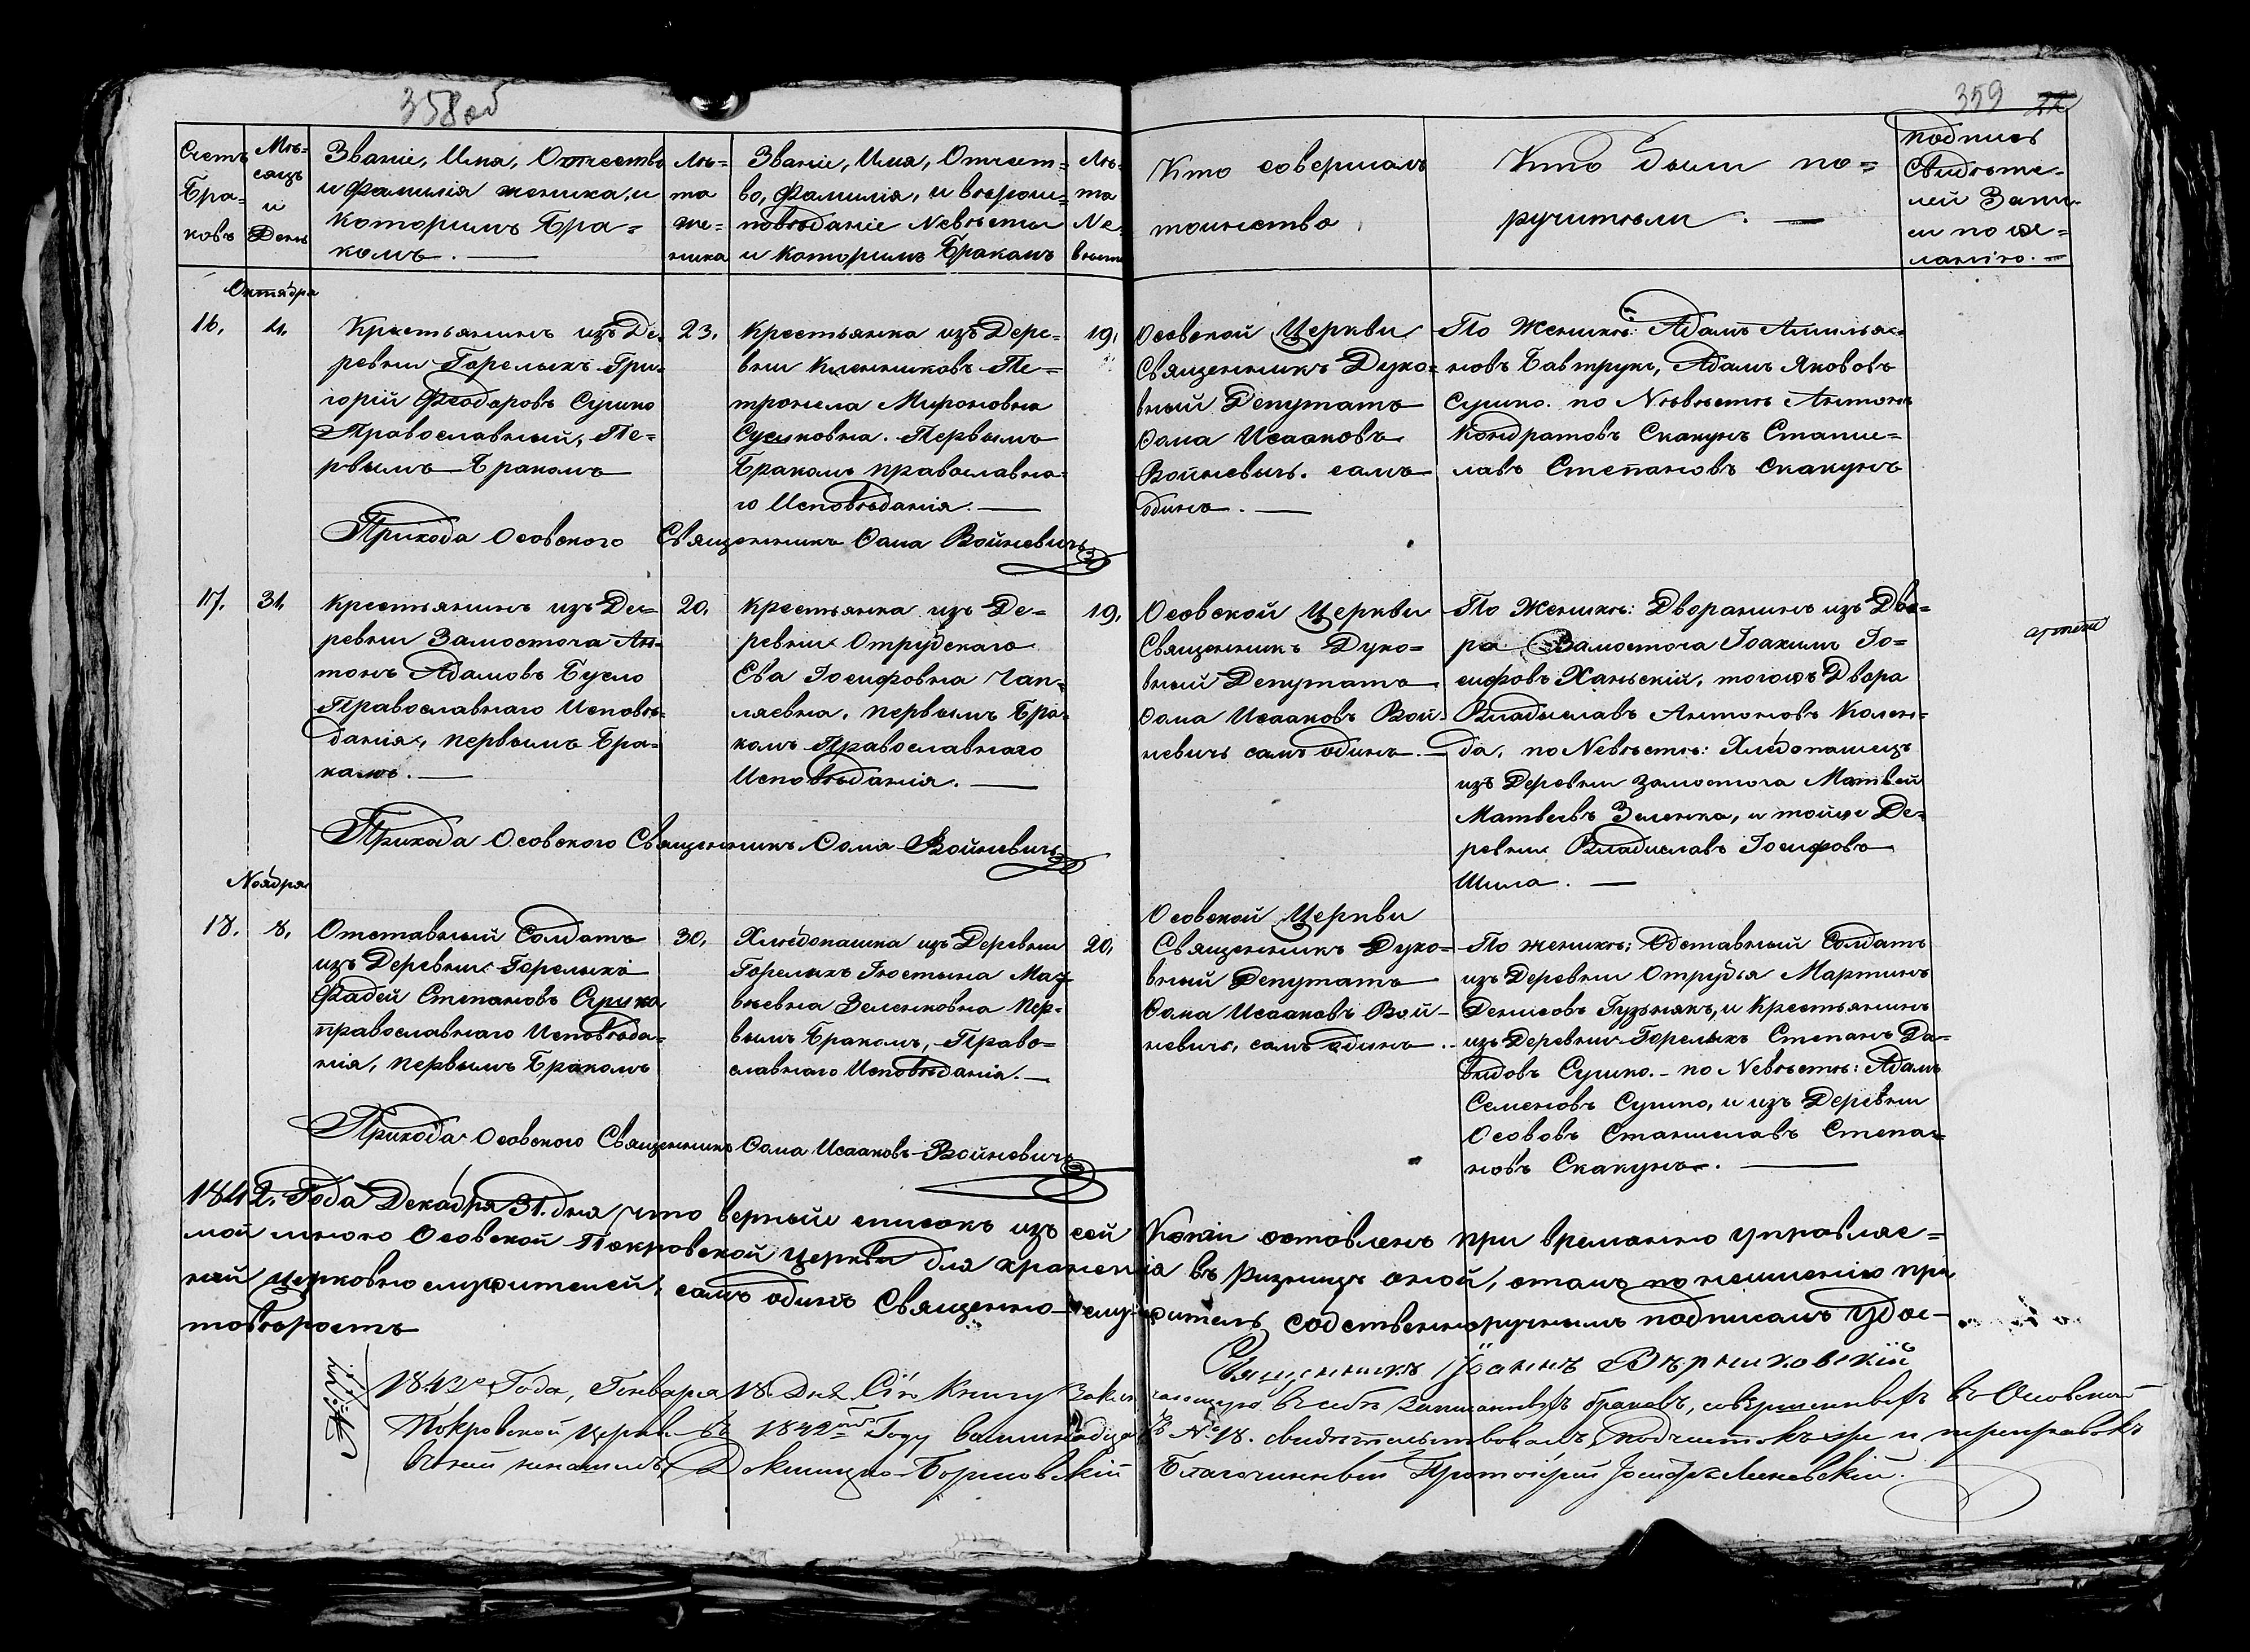 358об
359
Счетъ Браковъ
Мѣсяцъ и День
Званіе, Имя, Отчество
и Фамилія жениха, и
которымъ Бра=
комъ.
Лѣта жениха
Званіе, Имя, Отчест=
во, Фамилія, и вѣроис=
повѣданіе Невѣсты
и которымъ Бракомъ
Лѣта Невѣсты
Кто совершалъ
таинство
Кто были по=
ручители.
Подпись
Свидѣте=
лей Запи
си по же=
ланію.
Октября
16.
Крестьянинъ изъ Де=
ревни Горелыхъ Гри=
горій Феодоровъ Сушко
Православный, Пе=
рвымъ Бракомъ
23.
Крестьянка изъ Дере=
вни Клениковъ Пе=
тронела Мироновна
Сушковна. Первымъ
Бракомъ православна=
го Исповѣданія.
19.
Осовской Церкви
Священникъ Духо=
вный Депутатъ
Ѳома Исааковъ
Войневичь. самъ
одинъ.
По Женихѣ: Адамъ Амилья=
новъ Бавтрукъ, Адамъ Яковъ
Сушко. по Невѣстѣ Антонъ
Кондратовъ Скакунъ Станис=
лавъ Степановъ Скакунъ
Прихода Осовского Священникъ Ѳома Войневичь
17.
31.
Крестьянинъ изъ Де=
ревни Замосточа Ан=
тонъ Адамовъ Бусло
Православнаго Исповѣ=
данія, первымъ Бра=
комъ.
20.
Крестьянка изъ Де=
ревни Отрубскаго
Ева Іосифовна Чап=
ляевна, первымъ Бра=
комъ Православнаго
Исповѣданія.
19.
Осовской Церкви
Священникъ Духо=
вный Депутатъ
Ѳома Исааковъ Вой=
невичь самъ одинъ.
По Женихѣ: Дворанинъ изъ Дво=
ра Замосточа Іоакимъ Іо=
сифовъ Ханьскій, тогожъ Двора
Владыславъ Антоновъ Колен=
да, по Невѣстѣ: Хлѣбопашецъ
изъ Деревни Замосточа Матвей
Матвеевъ Зеленка, и тойже Де=
ревни Владиславъ Іосифовъ
Шила.
Прихода Осовского Священникъ Ѳома Войневичь
Ноября
18.
8.
Отставный Солдатъ
изъ Деревни Горелыхъ
Фадей Степановъ Сушко
православнаго Исповѣда=
нія, первымъ Бракомъ
30.
Хлѣбопашка изъ Деревни
Горелыхъ Іюстына Мат=
вѣевна Зеленковна Пер=
вымъ Бракомъ, Право=
славнаго Исповѣданія.
20.
Осовской Церкви
Священникъ Духо=
вный Депутатъ
Ѳома Исааковъ Вой=
невичь, самъ одинъ.
По женихѣ: Одставный Солдатъ
изъ Деревни Отрубья Мартинъ
Денисовъ Гузьнякъ, и Крестьянинъ
изъ Деревни Горелыхъ Степанъ Да=
видовъ Сушко. по Невѣстѣ: Адамъ
Семеновъ Сушко, и изъ Деревни
Ососовъ Станиславъ Степа=
новъ Скакунъ.
Прихода Осовского Священникъ Ѳома Исааковъ Войневичь
1842. Года Декабря 31. дня, что верный списокъ изъ сей Копіи оставленъ при временно управляе=
мой мною Осовской Покровской Церкви для храненія въ ризницѣ оной, въ томъ по неимѣнію при
ней церковнослужителей, самъ одинъ Священно-служитель собственноручнымъ подписомъ удос=
товѣряетъ
Священникъ Іоаннъ
1843го Года, Генваря 18. Дня Сію Книгу
въ себѣ записанныхъ браковъ, совершенныхъ въ Осовской
Покровской церкви въ 1842мъ Году
№ 18. свидѣтельствовалъ, подчистокъ же и переправокъ
въ ней ненашелъ, Докшицко-Борисовскій Благочинный Протоіерей Іосифъ